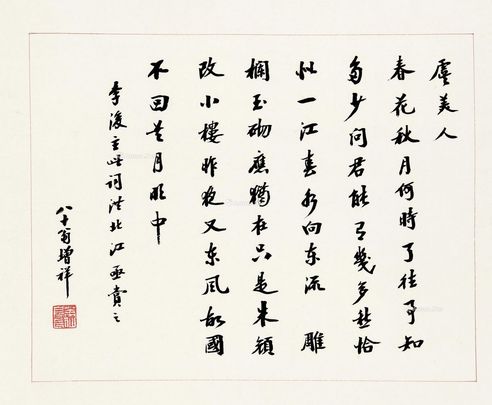 虞美人
春花秋月何時了往事知
多少問君能有幾多愁恰
似一江春水向东流 雕
欄玉砌應猶在只是朱顏
改小樓昨夜又东風故國
不回首月明中
李後主此詞洪北江亟賞之
八十翁增祥